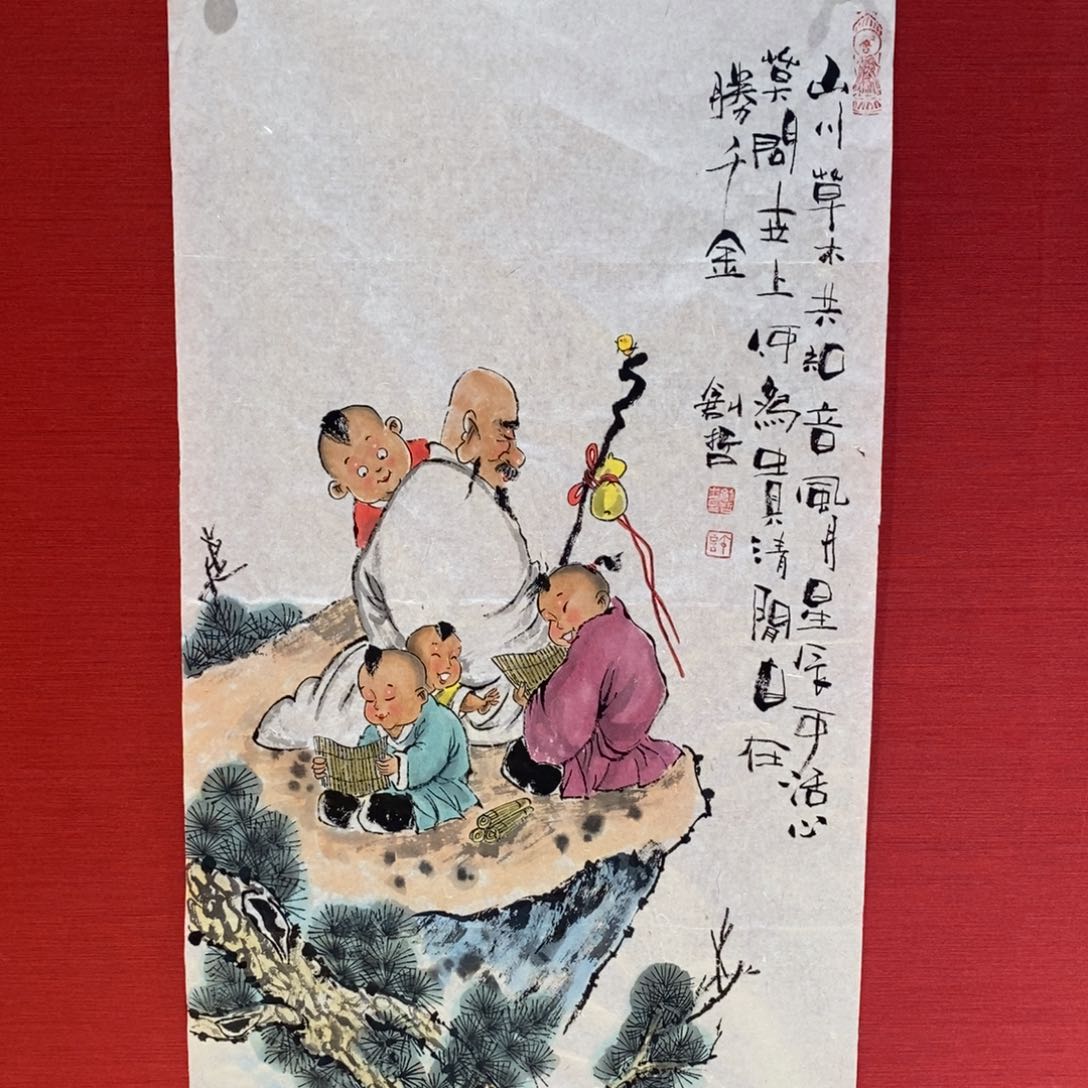 山川草木共知音風月星辰可活心
莫問世上何為貴清閒自在
勝千金
劍哲